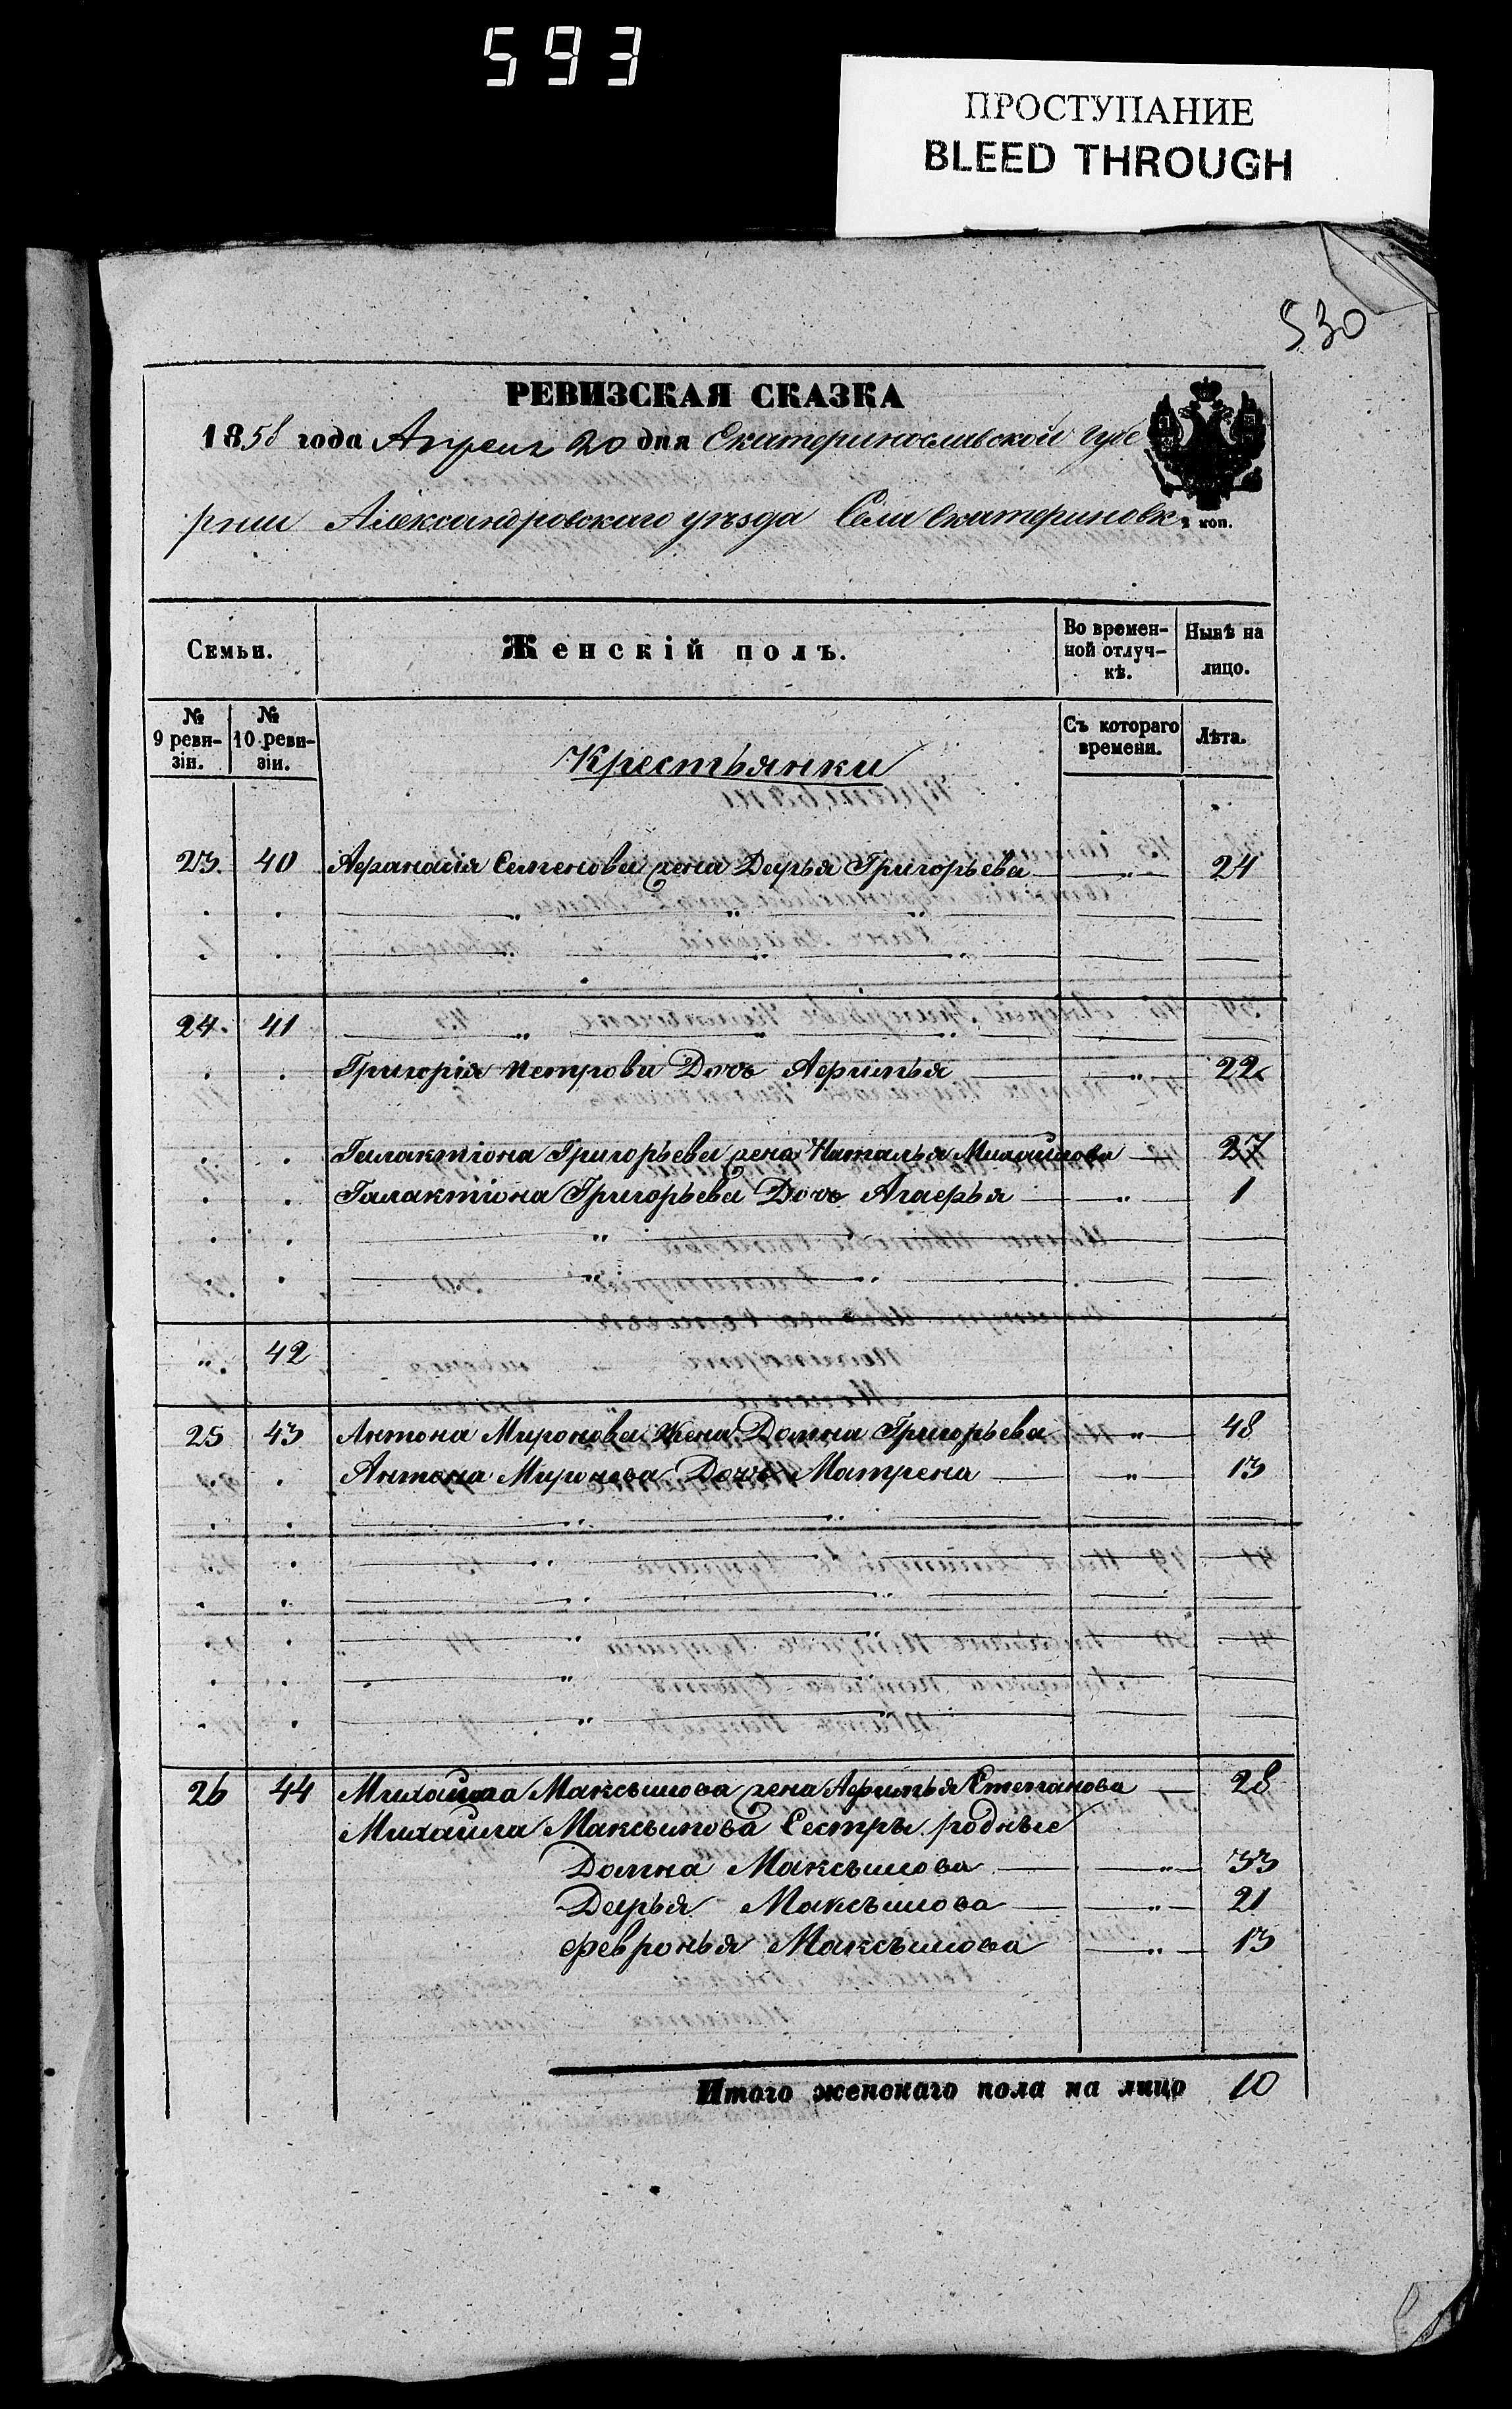 593
ПРОСТУПАНИЕ
BLEED THROUGH
530
РЕВИЗСКАЯ СКАЗКА
1858 года Апреля 20 дня Екатеринославской губе
рнии Александровскаго уѣзда Села Екатериновк
2 коп.
Семьи. Женскій полъ. Во времен-ной отлуч-кѣ. Нынѣ на лицо.
№ 9 реви-зіи. № 10 реви-зіи. Съ котораго времени. Лѣта.
Крестьянки
23. 40 Афанасія Семенова жена Дарья Григорьева — " — 24
24. 41
Григорія Петрова Дочь Афимья — " — 22
Галактіона Григорьева жена Наталья Михайлова — 27
Галактіона Григорьева Дочь Агафья — " — 1
". 42
25 43 Антона Миронова Жена Домна Григорьева — " — 48
Антона Миронова Дочь Матрена — " — 13
26 44 Михайла Максимова жена Афимья Степанова — 28
Михайла Максимова Сестры родные
Домна Максимова — " — 33
Дарья Максимова — " — 21
Февронья Максимова — " — 13
Итого женскаго пола на лицо 10